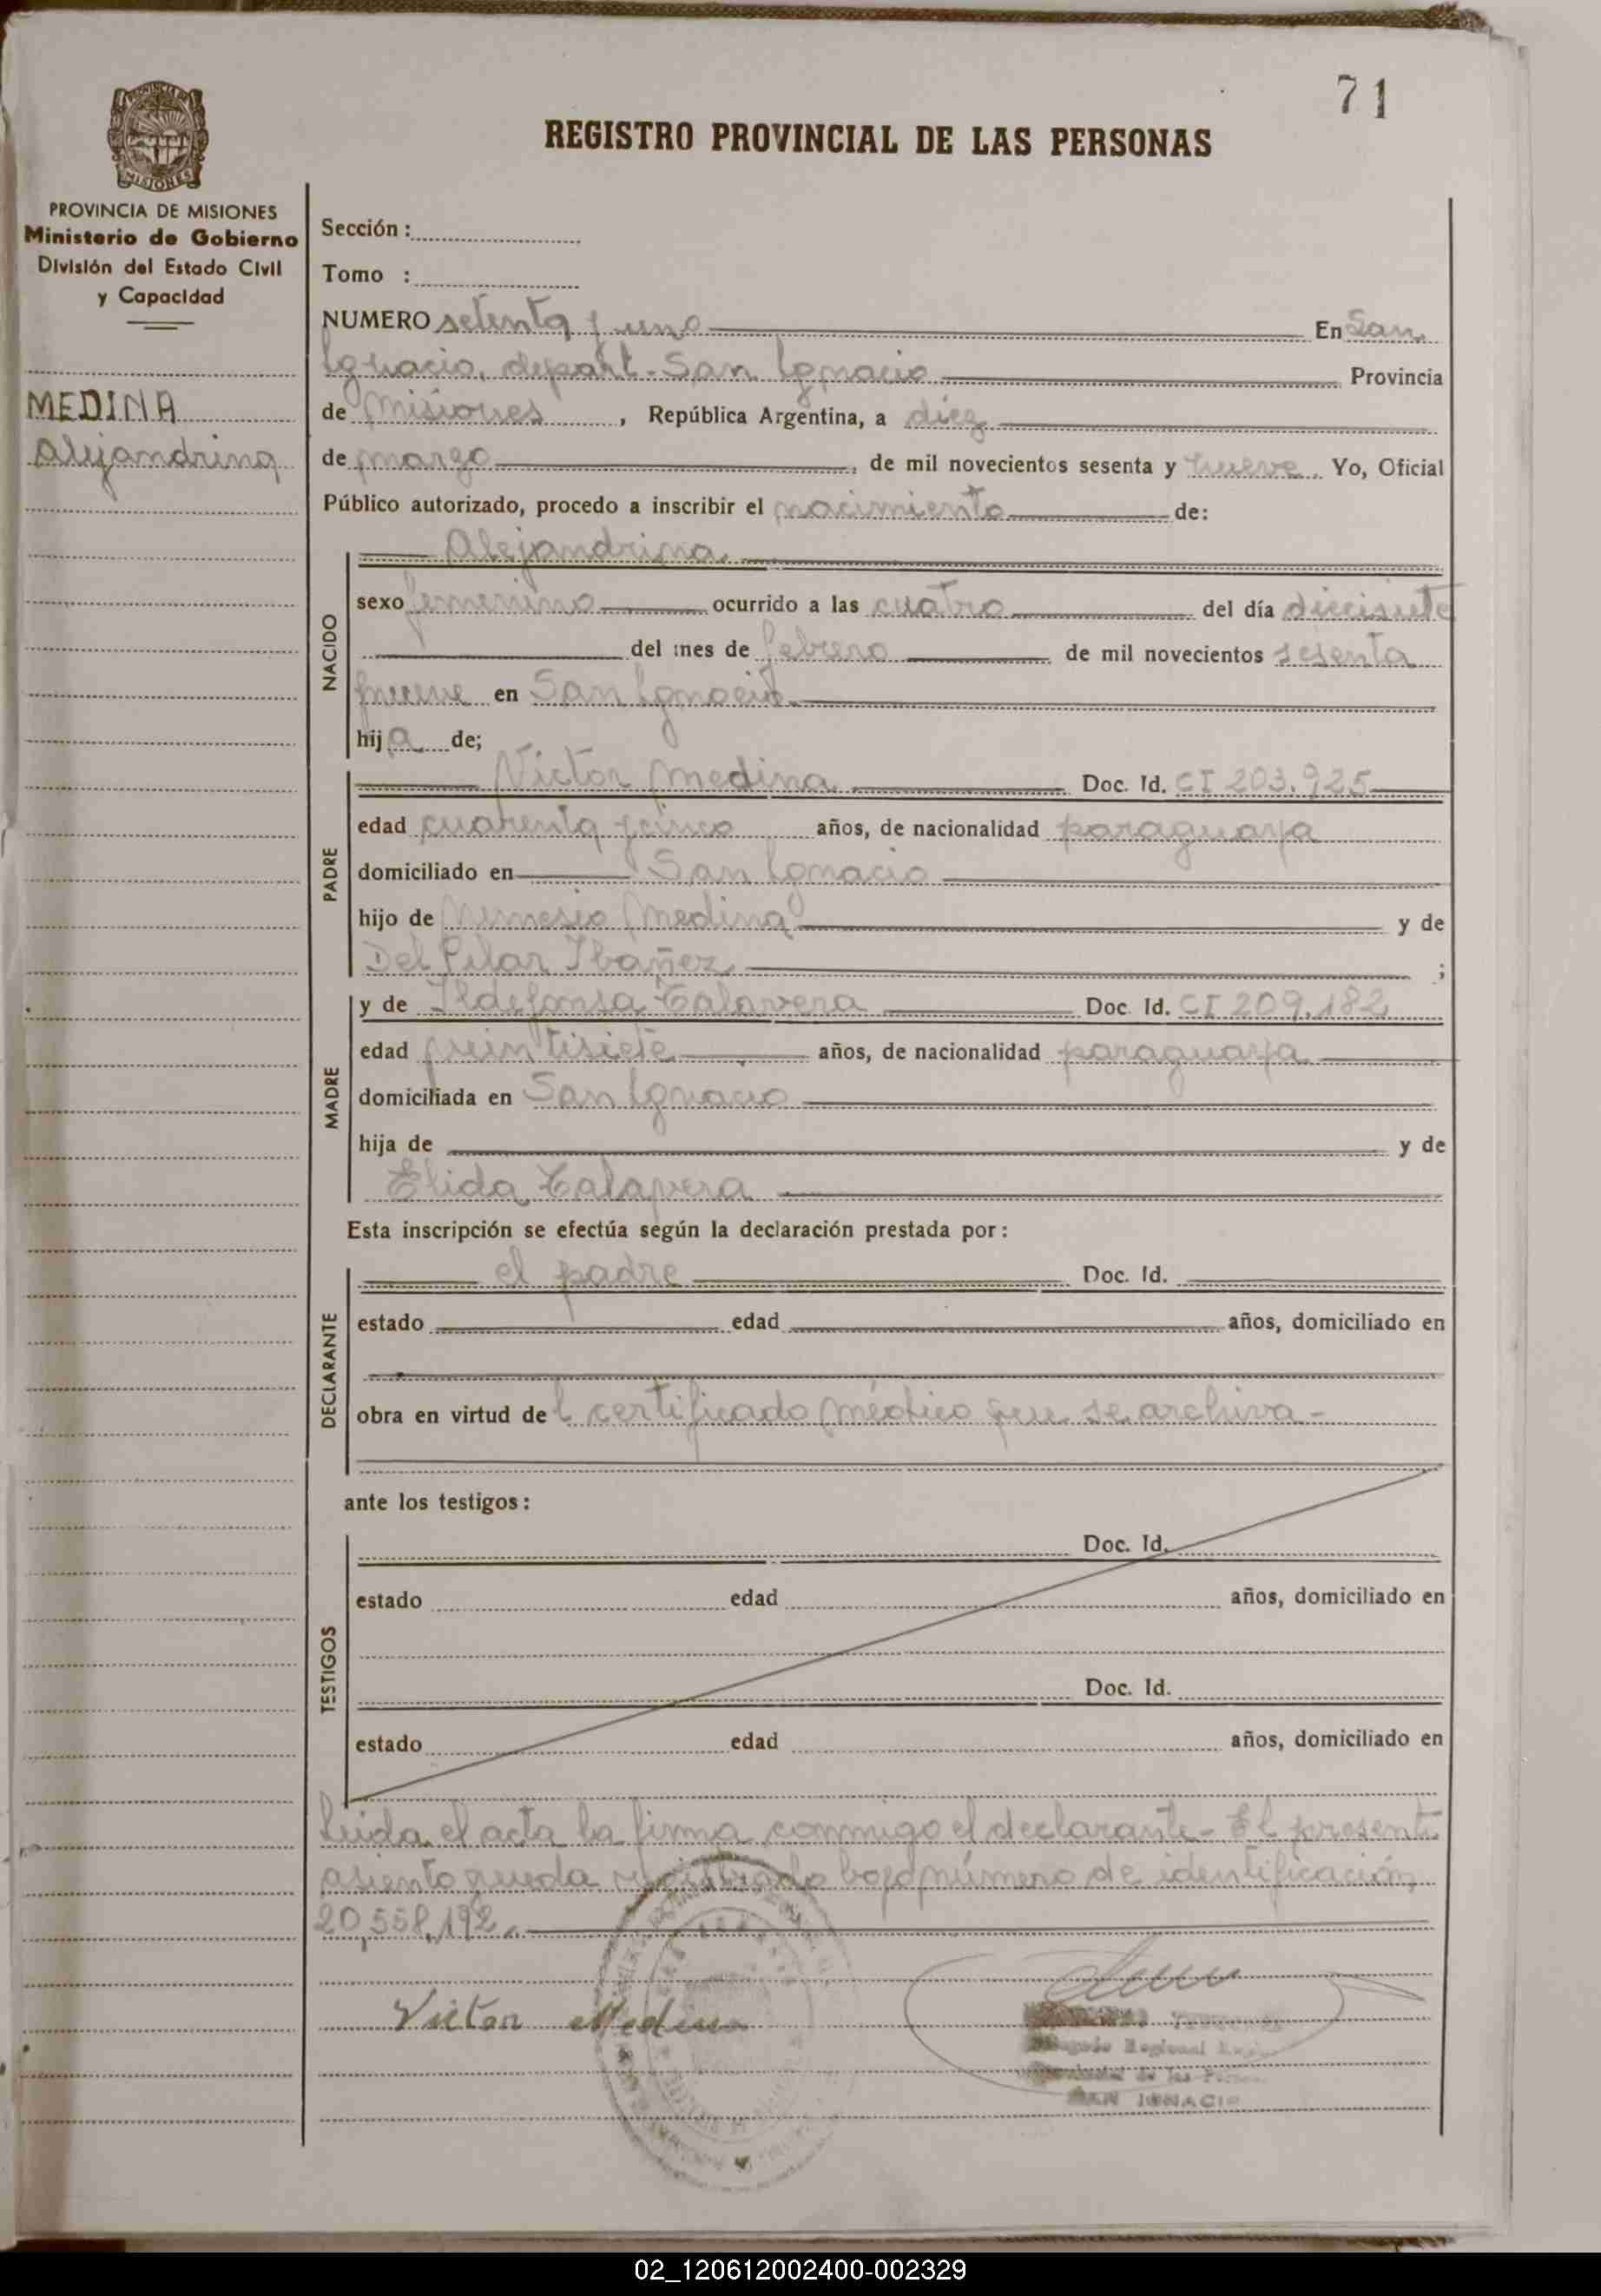 71
REGISTRO PROVINCIAL DE LAS PERSONAS
PROVINCIA DE MISIONES
Ministerio de Gobierno
División del Estado Civil
y Capacidad
MEDINA
Alejandrina
Sección :
Tomo :
NUMERO setenta y uno En San
Ignacio, depart. San Ignacio Provincia
de Misiones, República Argentina, a diez
de marzo, de mil novecientos sesenta y nueve. Yo, Oficial
Público autorizado, procedo a inscribir el nacimiento de:
NACIDO
Alejandrina
sexo femenino ocurrido a las cuatro del día diecisiete
del mes de febrero de mil novecientos sesenta
nueve en San Ignacio
hija de;
PADRE
Victor Medina Doc. Id. CI 203.925
edad cuarenta y cinco años, de nacionalidad paraguaya
domiciliado en San Ignacio
hijo de Nemesio Medina y de
Del Pilar Ibañez ;
MADRE
y de Ildefonsa Talavera Doc. Id. CI 209.182
edad veintisiete años, de nacionalidad paraguaya
domiciliada en San Ignacio
hija de y de
Elida Talavera
Esta inscripción se efectúa según la declaración prestada por :
DECLARANTE
el padre Doc. Id.
estado edad años, domiciliado en
obra en virtud del certificado médico que se archiva -
ante los testigos :
TESTIGOS
Doc. Id.
estado edad años, domiciliado en
Doc. Id.
estado edad años, domiciliado en
Leida el acta la firma conmigo el declarante - El presente
asiento queda registrado bajo número de identificación
20,558,192.
Victor Medina
Regional
de las
SAN IGNACIO
02_120612002400-002329